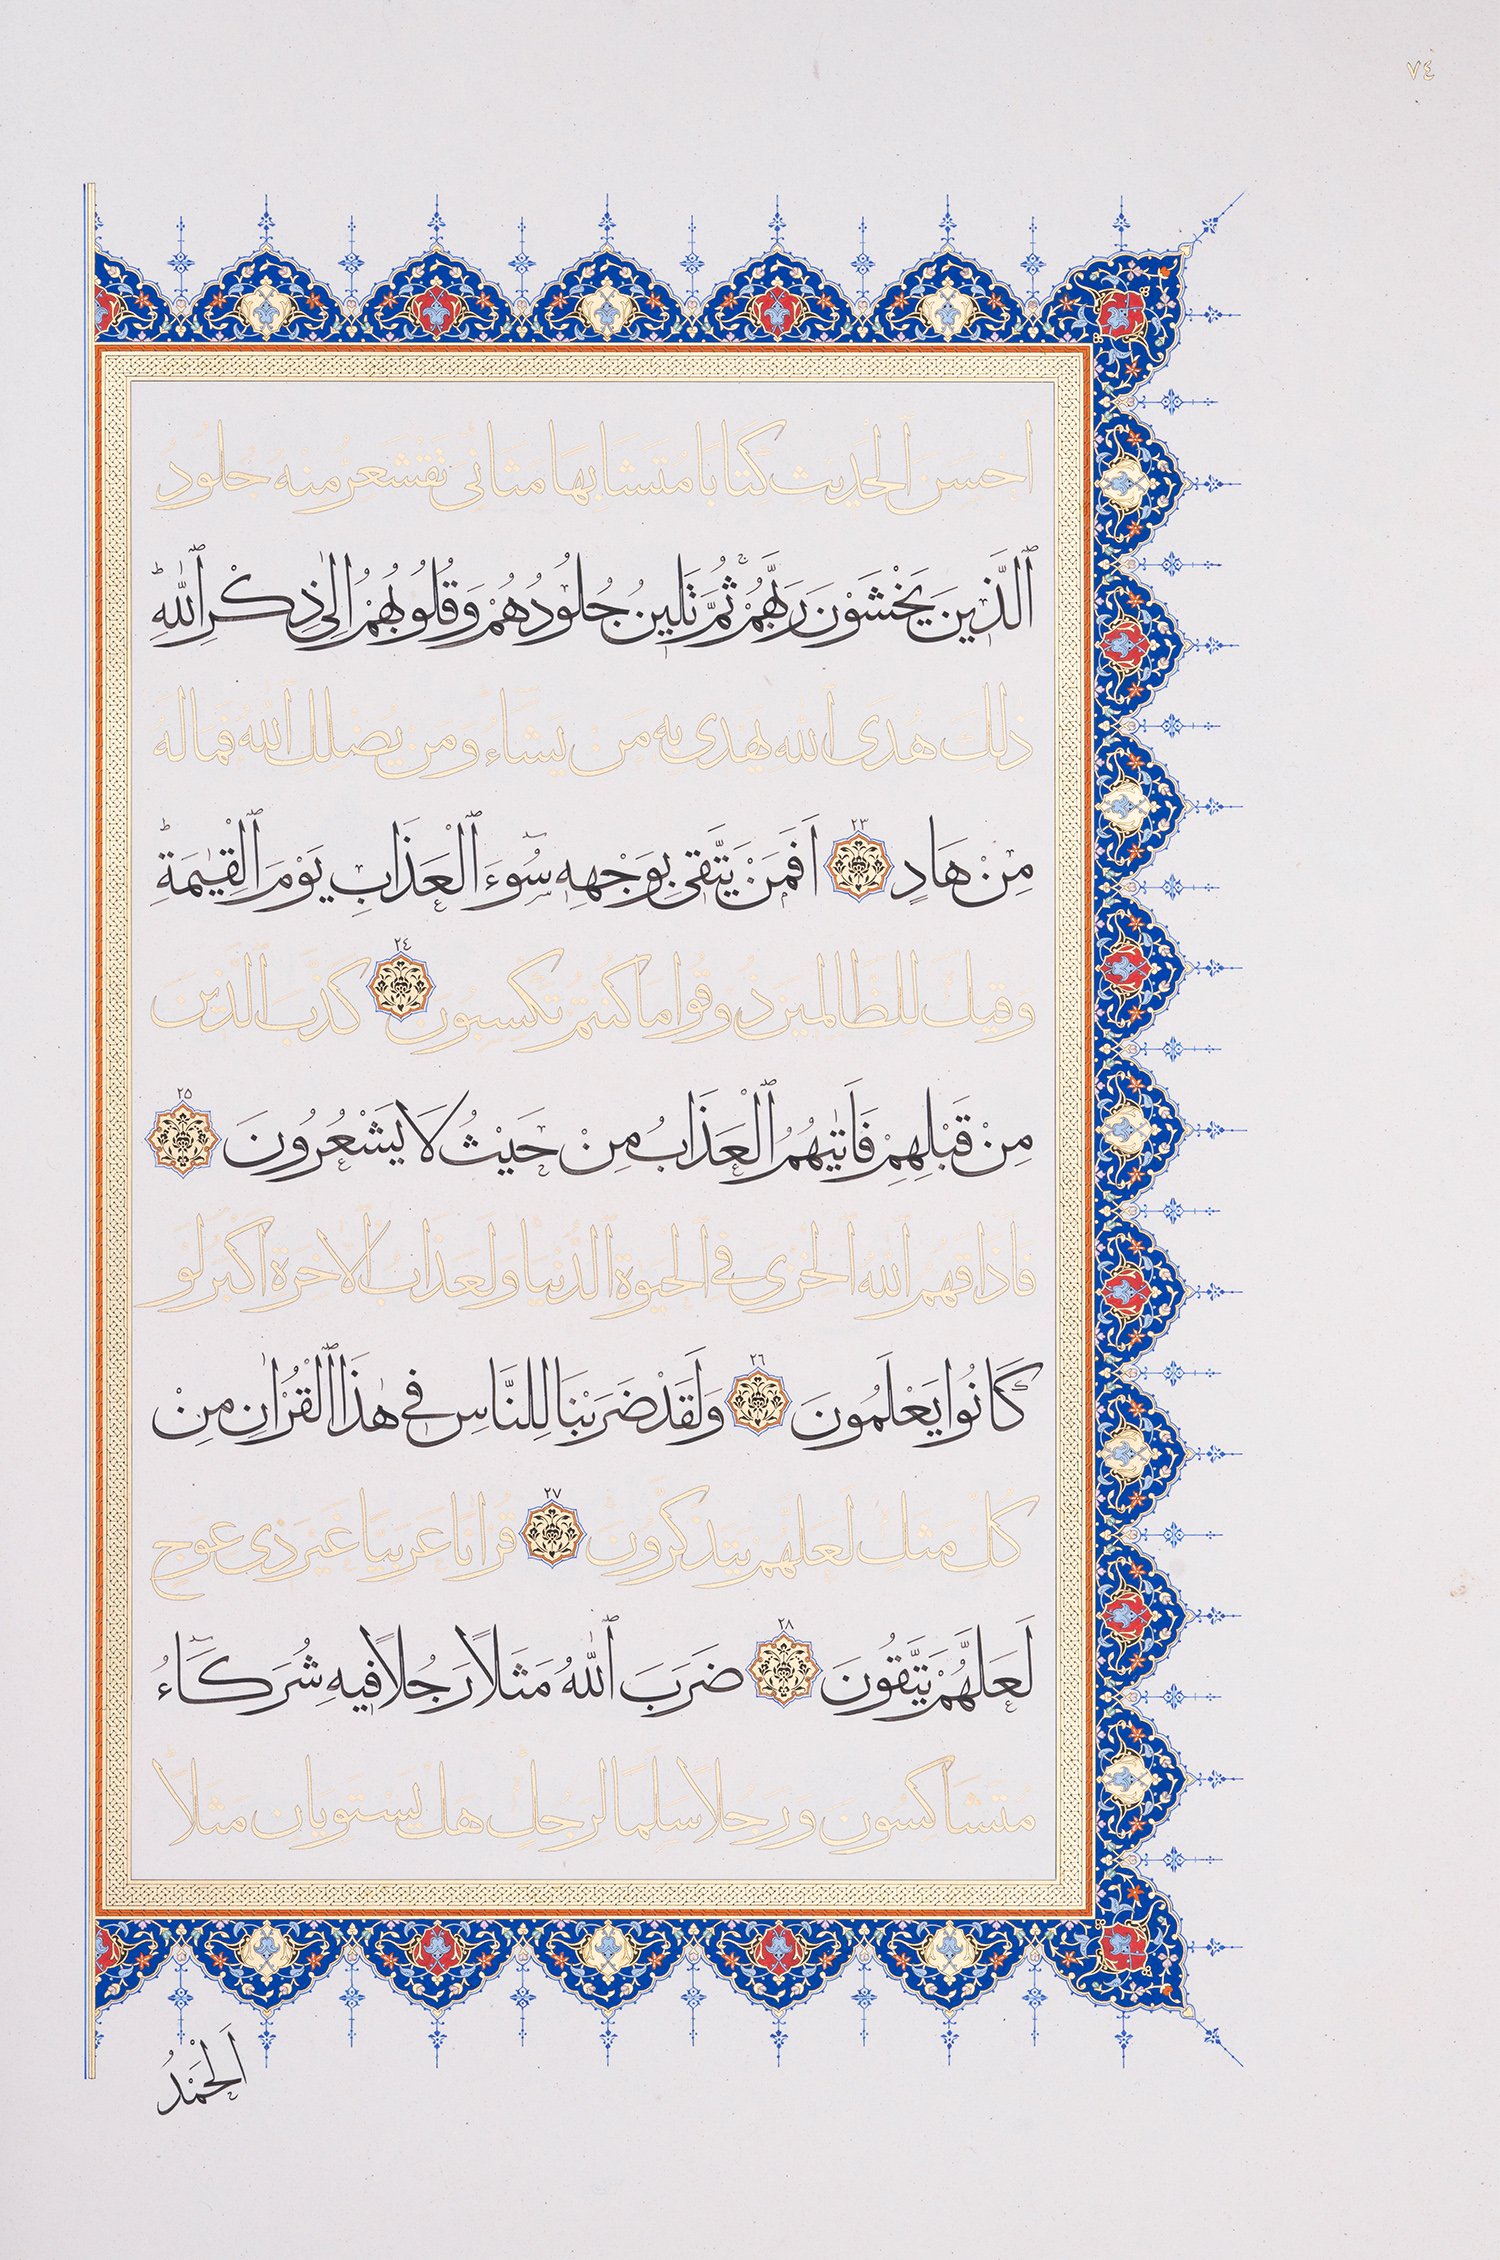 ٧٤
اَحْسَنَ ٱلْحَدِيثِ كِتَابًا مُتَشَابِهًا مَثَانِيَ تَقْشَعِرُّ مِنْهُ جُلُودُ
ٱلَّذِينَ يَخْشَوْنَ رَبَّهُمْۚ ثُمَّ تَلِينُ جُلُودُهُمْ وَقُلُوبُهُمْ اِلٰى ذِكْرِ ٱللّٰهِؕ
ذٰلِكَ هُدَى ٱللّٰهِ يَهْدِى بِهِ مَنْ يَشَاءُ وَمَنْ يُضْلِلِ ٱللّٰهُ فَمَا لَهُ
مِنْ هَادٍ ٢٣ اَفَمَنْ يَتَّقِى بِوَجْهِهِ سُوءَ ٱلْعَذَابِ يَوْمَ ٱلْقِيٰمَةِؕ
وَقِيلَ لِلظَّالِمِينَ ذُوقُوا مَا كُنْتُمْ تَكْسِبُونَ ٢٤ كَذَّبَ ٱلَّذِينَ
مِنْ قَبْلِهِمْ فَاَتٰيهُمُ ٱلْعَذَابُ مِنْ حَيْثُ لَا يَشْعُرُونَ ٢٥
فَاَذَاقَهُمُ ٱللّٰهُ ٱلْخِزْىَ فِى ٱلْحَيٰوةِ ٱلدُّنْيَا وَلَعَذَابُ ٱلْاٰخِرَةِ اَكْبَرُ لَوْ
كَانُوا يَعْلَمُونَ ٢٦ وَلَقَدْ ضَرَبْنَا لِلنَّاسِ فِى هٰذَا ٱلْقُرْاٰنِ مِنْ
كُلِّ مَثَلٍ لَعَلَّهُمْ يَتَذَكَّرُونَ ٢٧ قُرْاٰنًا عَرَبِيًّا غَيْرَ ذِى عِوَجٍ
لَعَلَّهُمْ يَتَّقُونَ ٢٨ ضَرَبَ ٱللّٰهُ مَثَلًا رَجُلًا فِيهِ شُرَكَاءُ
مُتَشَاكِسُونَ وَرَجُلًا سَلَمًا لِرَجُلٍ هَلْ يَسْتَوِيَانِ مَثَلًا
اَلْحَمْدُ